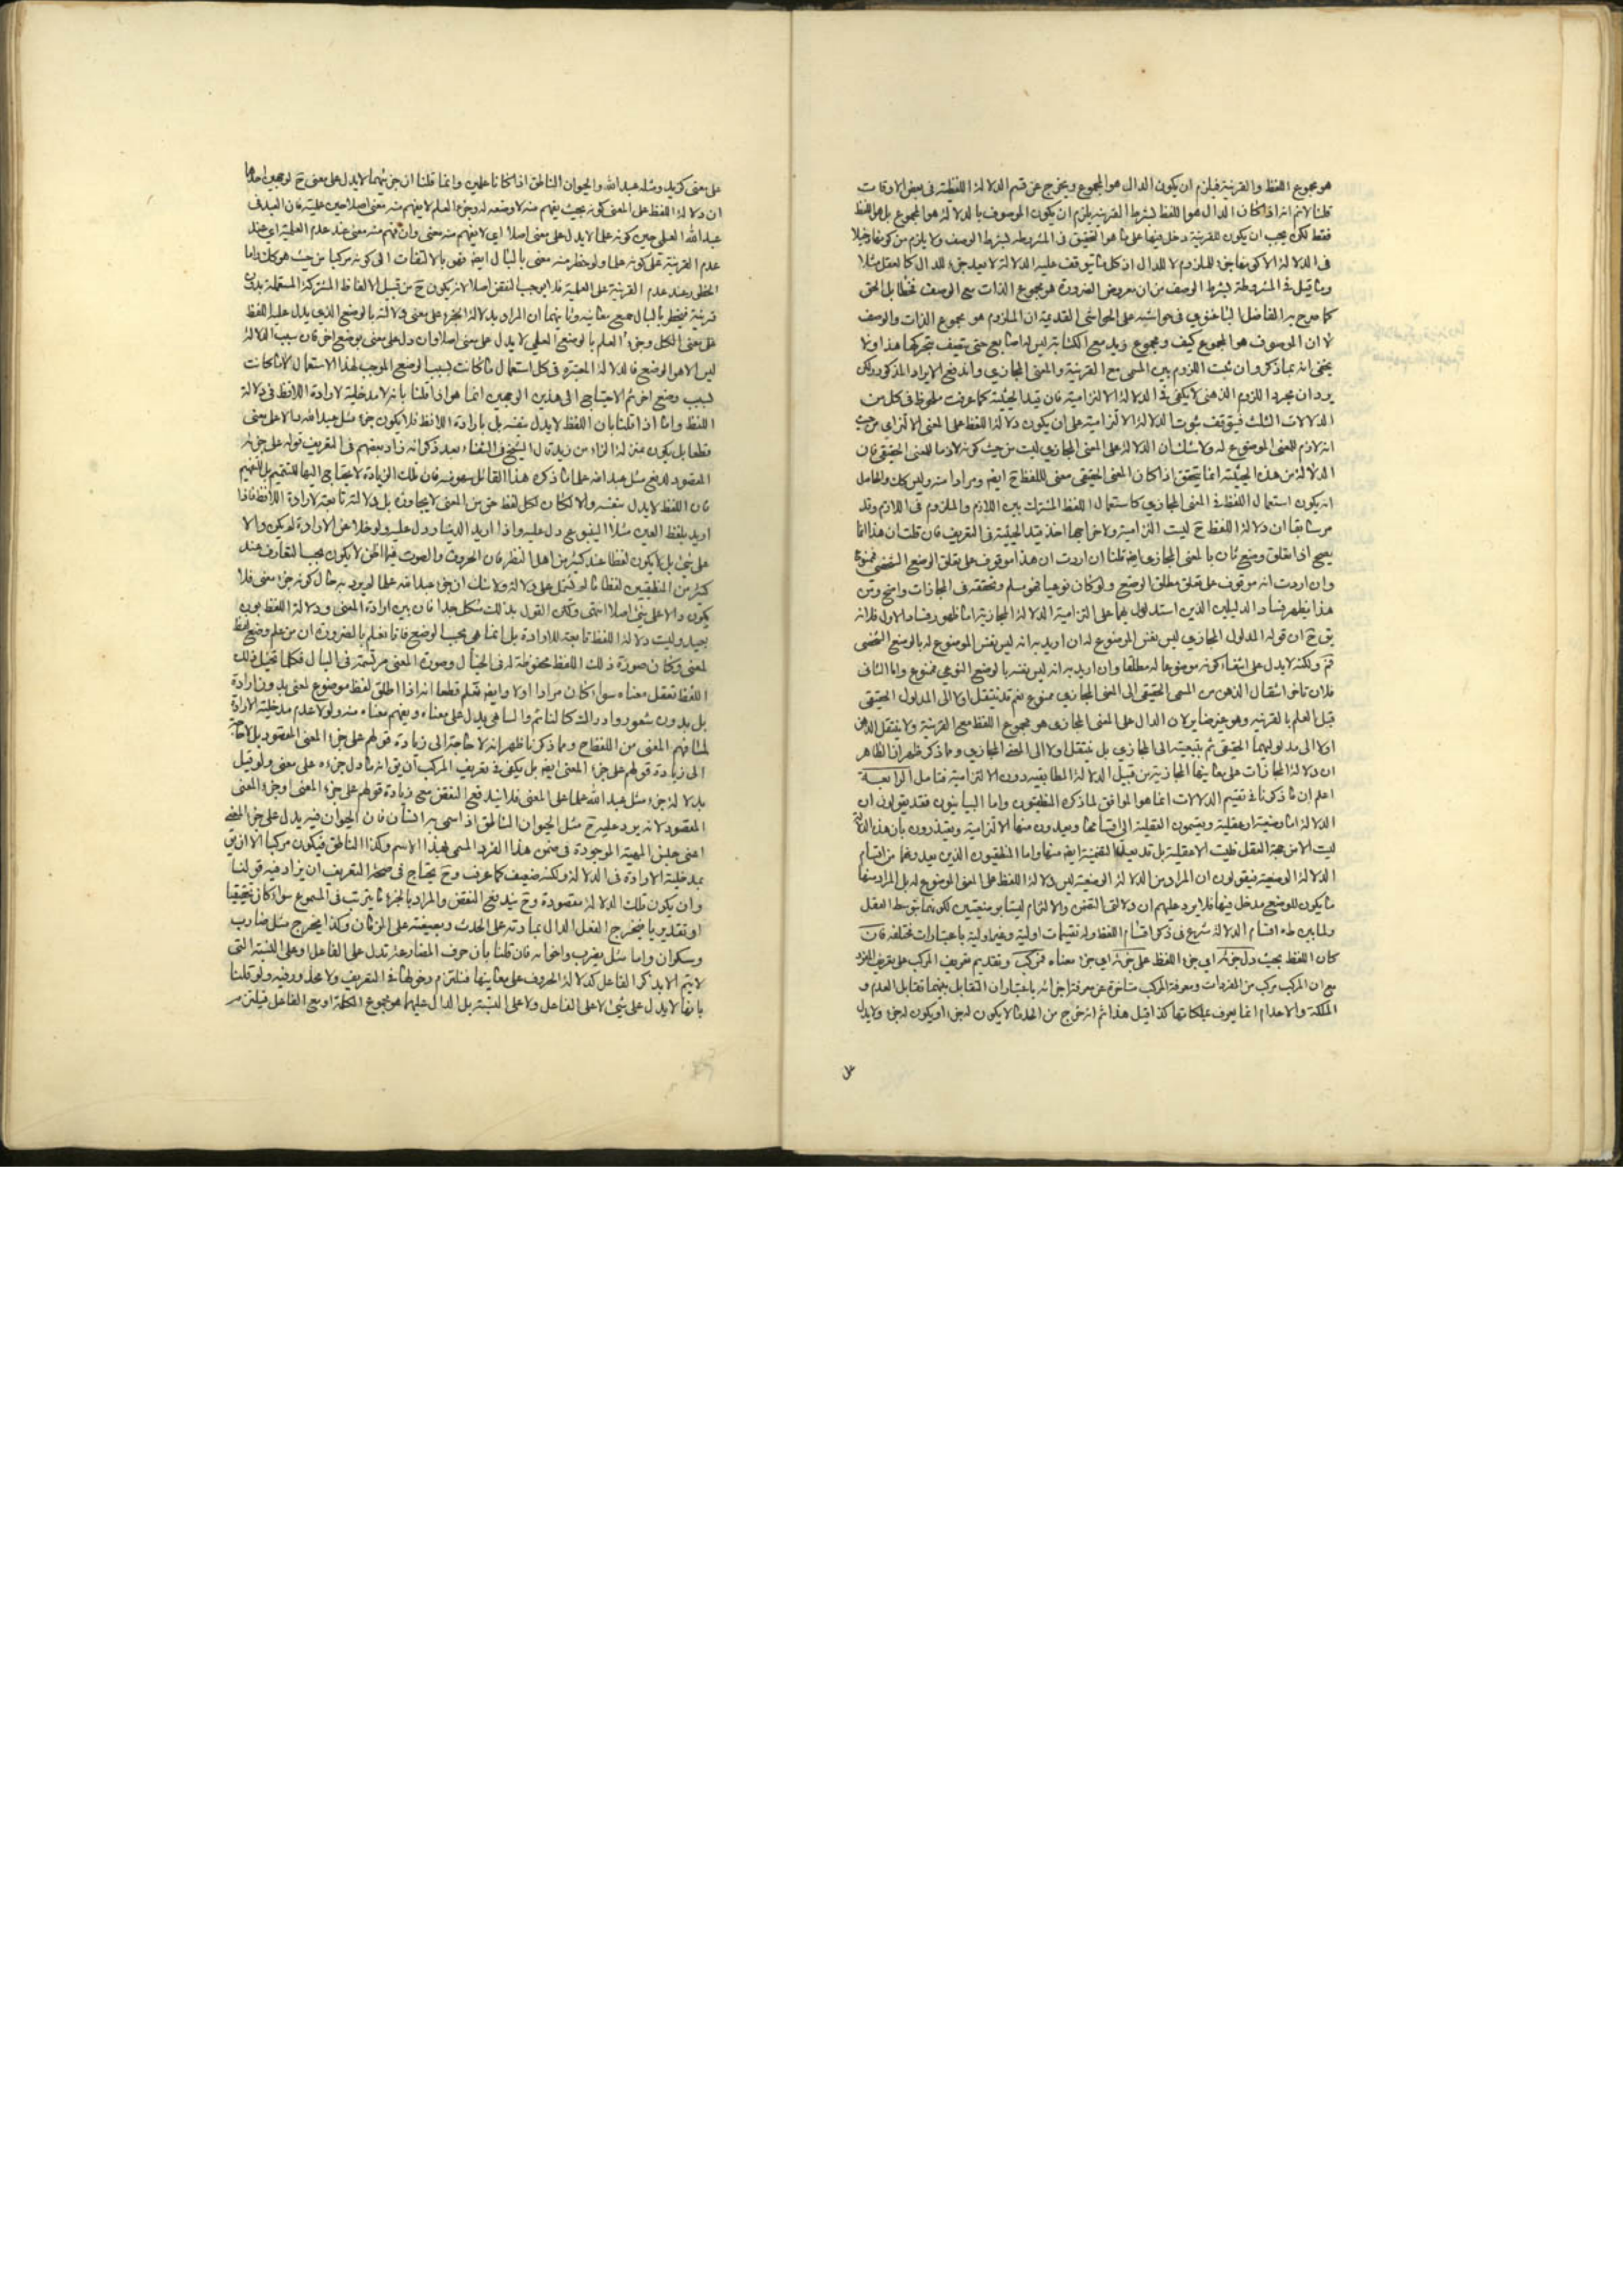 هو مجموع اللفظ والقرينة فيلزم ان يكون الدال هو المجموع ويخرج عن قسم الدلالة اللفظية في بعض الاوقات
قلنا لانم انه اذا كان الدال هو اللفظ بشرط القرينة يلزم ان يكون الموصوف بالدلالة هو المجموع بل هو اللفظ
فقط لكن يجب ان يكون للقرينة دخل فيها على ما هو التحقيق في المشروطة بشرط الوصف ولا يلزم من كونها دخيلا
في الدلالة الا كونها جزء للملزوم لا للدال اذ كل ما يتوقف عليه الدلالة لا يعد جزء للدال كالعقل مثلا
وما قيل في المشروطة بشرط الوصف من ان معروض الضرورة هو مجموع الذات مع الوصف فخطأ بل الحق
كما صرح به الفاضل الباغنوي في حواشيه على الحواشي القديمة ان الملزوم هو مجموع الذات والوصف
لا ان الموصوف هو المجموع كيف ومجموع زيد مع الكتابة ليس له اصابع حتى يتصف بتحركها هذا ولا
يخفى انه بما ذكر وان ثبت اللزوم بين المسمى مع القرينة والمعنى المجازي واندفع الايراد المذكور ولكن
يرد ان مجرد اللزوم الذهني لا يكفي في الدلالة الالتزامية فان قيد الحيثية كما عرفت ملحوظ في كل من
الدلالات الثلث فيتوقف ثبوت الدلالة الالتزامية على ان يكون دلالة اللفظ على المعنى الالتزامي من حيث
انه لازم للمعنى الموضوع له ولا شك ان الدلالة على المعنى المجازي ليست من حيث كونه لازما للمعنى الحقيقي فان
الدلالة من هذه الحيثية انما يتحقق اذا كان المعنى الحقيقي معنى للفظ ح ايضا ومرادا منه وليس كك والحاصل
انه يكون استعمال اللفظ في المعنى المجازي كاستعمال اللفظ المشترك بين اللازم والملزوم في اللازم وقد
مر سابقا ان دلالة اللفظ ح ليست التزامية ولاخراجها اخذ قيد الحيثية في التعريف فان قلت ان هذا انما
يصح اذا تعلق وضع ثان بالمعنى المجازي ايضا قلنا ان اردت ان هذا موقوف على تعلق الوضع الشخصي فممنوع
وان اردت انه موقوف على تعلق مطلق الوضع ولو كان نوعيا فهو مسلم وتحققه في المجازات واضح ومن
هذا يظهر فساد الدليلين الذين استدلوا بهما على التزامية الدلالة المجازية اما ظهور فساد الاول فلانه
يق ح ان قوله المدلول المجازي ليس نفس الموضوع له ان اريد به انه ليس نفس الموضوع له بالوضع الشخصي
فم ولكنه لا يدل على انتفاء كونه موضوعا له مطلقا وان اريد به انه ليس نفسه بالوضع النوعي فممنوع واما الثاني
فلان تأخر انتقال الذهن من المسمى الحقيقي الى المعنى المجازي ممنوع نعم قد ينتقل اولا الى المدلول الحقيقي
قبل العلم بالقرينة وهو غير ضاير لان الدال على المعنى المجازي هو مجموع اللفظ مع القرينة ولا ينتقل الذهن
اولا الى مدلولهما الحقيقي ثم بتبعيته الى المجازي بل ينتقل اولا الى المعنى المجازي ومما ذكر ظهر ان الظاهر
ان دلالة المجازات على معانيها المجازية من قبيل الدلالة المطابقية دون الالتزامية فتامل الرابعة
اعلم ان ما ذكرنا في تقسيم الدلالات انما هو الموافق لما ذكره المنطقيون واما البيانيون فقد يقولون ان
الدلالة اما وضعية او عقلية ويقسمون العقلية الى اقسامها ويعدون منها الالتزامية ويعتذرون بان هذه الدلالة
ليست الا من جهة العقل فليست الا عقلية بل قد يعدوا التضمنية ايضا منها واما المنطقيون الذين يعدونها من اقسام
الدلالة الوضعية فيقولون ان المراد من الدلالة الوضعية ليس دلالة اللفظ على المعنى الموضوع له بل المراد منها
ما يكون للوضع مدخل فيها فلا يرد عليهم ان دلالتي التضمن والالتزام ليستا بوضعيتين لكونهما بتوسط العقل
ولما بين طه اقسام الدلالة شرع في ذكر اقسام اللفظ وله تقسيمات اولية وغير اولية باعتبارات مختلفه فان
كان اللفظ بحيث دل جزئه اي جزء اللفظ على جزئه اي جزء معناه فمركب وتقديم تعريف المركب على تعريف المفرد
مع ان المركب مركب من المفردات ومعرفة المركب متاخرة عن معرفة اجزائه باعتبار ان التقابل بينهما تقابل العدم و
الملكة والاعدام انما يعرف بملكاتها كذا قيل هذا ثم انه خرج من الحد ما لا يكون له جزء او يكون له جزء ولا يدل
على
على معنى كزيد ومثله عبد الله والحيوان الناطق اذا كانا علمين وانما قلنا ان جزئيهما لا يدل على معنى ح لوجهين احدهما
ان دلالة اللفظ على المعنى كونه بحيث يفهم منه لاوضعه له وجزء العلم لا يفهم منه معنى اصلا حين علميته فان العبد في
عبد الله العلمي حين كونه علما لا يدل على معنى اصلا اي لا يفهم منه معنى وان فهم منه معنى عند عدم العلمية اي عند
عدم القرينة على كونه علما ولو خطر منه معنى بالبال ايضا فهو بالالتفات الى كونه مركبا من حيث هو كك واما
الخطور عند عدم القرينة على العلمية فلا يوجب النقض اصلا لانه يكون ح من قبيل الالفاظ المشتركة المستعملة بدون
قرينة فيخطر بالبال جميع معانيه وثانيهما ان المراد بدلالة الجزء على معنى دلالته بالوضع الذي يدل عليه اللفظ
على معنى الكل وجزء العلم بالوضع العلمي لا يدل على معنى اصلا وان دل على معنى بوضع اخر فان سبب الدلالة
ليس الا هو الوضع فالدلالة المعتبرة في كل استعمال ما كانت بسبب الوضع الموجب لهذا الاستعمال لا ما كانت
بسبب وضع اخر ثم الاحتياج الى هذين الوجهين انما هو اذا قلنا بانه لا مدخلية لارادة اللافظ في دلالة
اللفظ واما اذا قلنا بان اللفظ لا يدل بنفسه بل بارادة اللافظ فلا يكون جزء مثل عبد الله دالا على معنى
قطعا بل يكون بمنزلة الزاء من زيد قال الشيخ في الشفاء بعد ذكر انه زاد بعضهم في التعريف قوله على جزئه
المقصود لدفع مثل عبد الله علما ما ذكره هذا القائل سهو منه فان تلك الزيادة لا يحتاج اليها للتتميم بل للتفهيم
فان اللفظ لا يدل بنفسه والا لكان لكل لفظ حق من المعنى لا يجاوزه بل دلالته تابعة لارادة اللافظ فاذا
اريد بلفظ العين مثلا الينبوع دل عليه واذا اريد الدينار دل عليه ولو خلا عن الارادة لم يكن دالا
على شيء بل لا يكون لفظا عند كثير من اهل النظر فان الحروف والصوت فيما اظن لا يكون بحسب التعارف عند
كثير من المنطقيين لفظا ما لو يشتمل على دلالة ولا شك ان جزء عبد الله علما لو يرد به حال كونه جزء معنى فلا
يكون دالا على شيء اصلا انتهى ولكن القول بذلك مشكل جدا فان بين ارادة المعنى ودلالة اللفظ بون
بعيد وليست دلالة اللفظ تابعة للارادة بل انما هي بحسب الوضع فانا نعلم بالضرورة ان من علم وضع لفظ
لمعنى وكان صورة ذلك اللفظ محفوظة له في الخيال وصورة المعنى مرتسمة في البال فكلما تخيل ذلك
اللفظ تعقل معناه سواء كان مرادا اولا وايضا نعلم قطعا انه اذا اطلق لفظ موضوع لمعنى بدون ارادة
بل بدون شعور وادراك كالنائم والساهي يدل على معناه ويفهم معناه منه ولولا عدم مدخلية الارادة
لما فهم المعنى من اللفظ ح ومما ذكرنا ظهر انه لا حاجة الى زيادة قولهم على جزء المعنى المقصود بل لا حاجة
الى زيادة قولهم على جزء المعنى ايضا بل يكفي في تعريف المركب ان يق انه ما دل جزءه على معنى ولو قيل
بدلالة جزء مثل عبد الله علما على المعنى فلا يندفع النقض مع زيادة قولهم على جزء المعنى او جزء المعنى
المقصود لانه يرد عليه ح مثل الحيوان الناطق اذا سمى به انسان فان الحيوان فيه يدل على جزء المعنى
اعني جنس المهية الموجودة في ضمن هذا الفرد المسمى بهذا الاسم وكذا الناطق فيكون مركبا الا ان يق
بمدخلية الارادة في الدلالة ولكنه ضعيف كما عرفت وح يحتاج في صحة التعريف ان يزاد فيه قولنا
وان يكون تلك الدلالة مقصودة وح يندفع النقض والمراد بالجزء ما يترتب في المسموع سواء كان تحقيقا
او تقديرا فيخرج الفعل الدال بمادته على الحدث وبصيغته على الزمان وكذا يخرج مثل ضارب
وسكران واما مثل يضرب واخواته فان قلنا بان حرف المضارعة تدل على الفاعل او على النسبة التي
لا يتم الا بذكر الفاعل كدلالة الحروف على معانيها فنلتزم دخولها في التعريف ولا محذور فيه ولو قلنا
بانها لا يدل على شيء لا على الفاعل ولا على النسبة بل الدال عليهما هو مجموع الكلمة او مع الفاعل فيلتزم